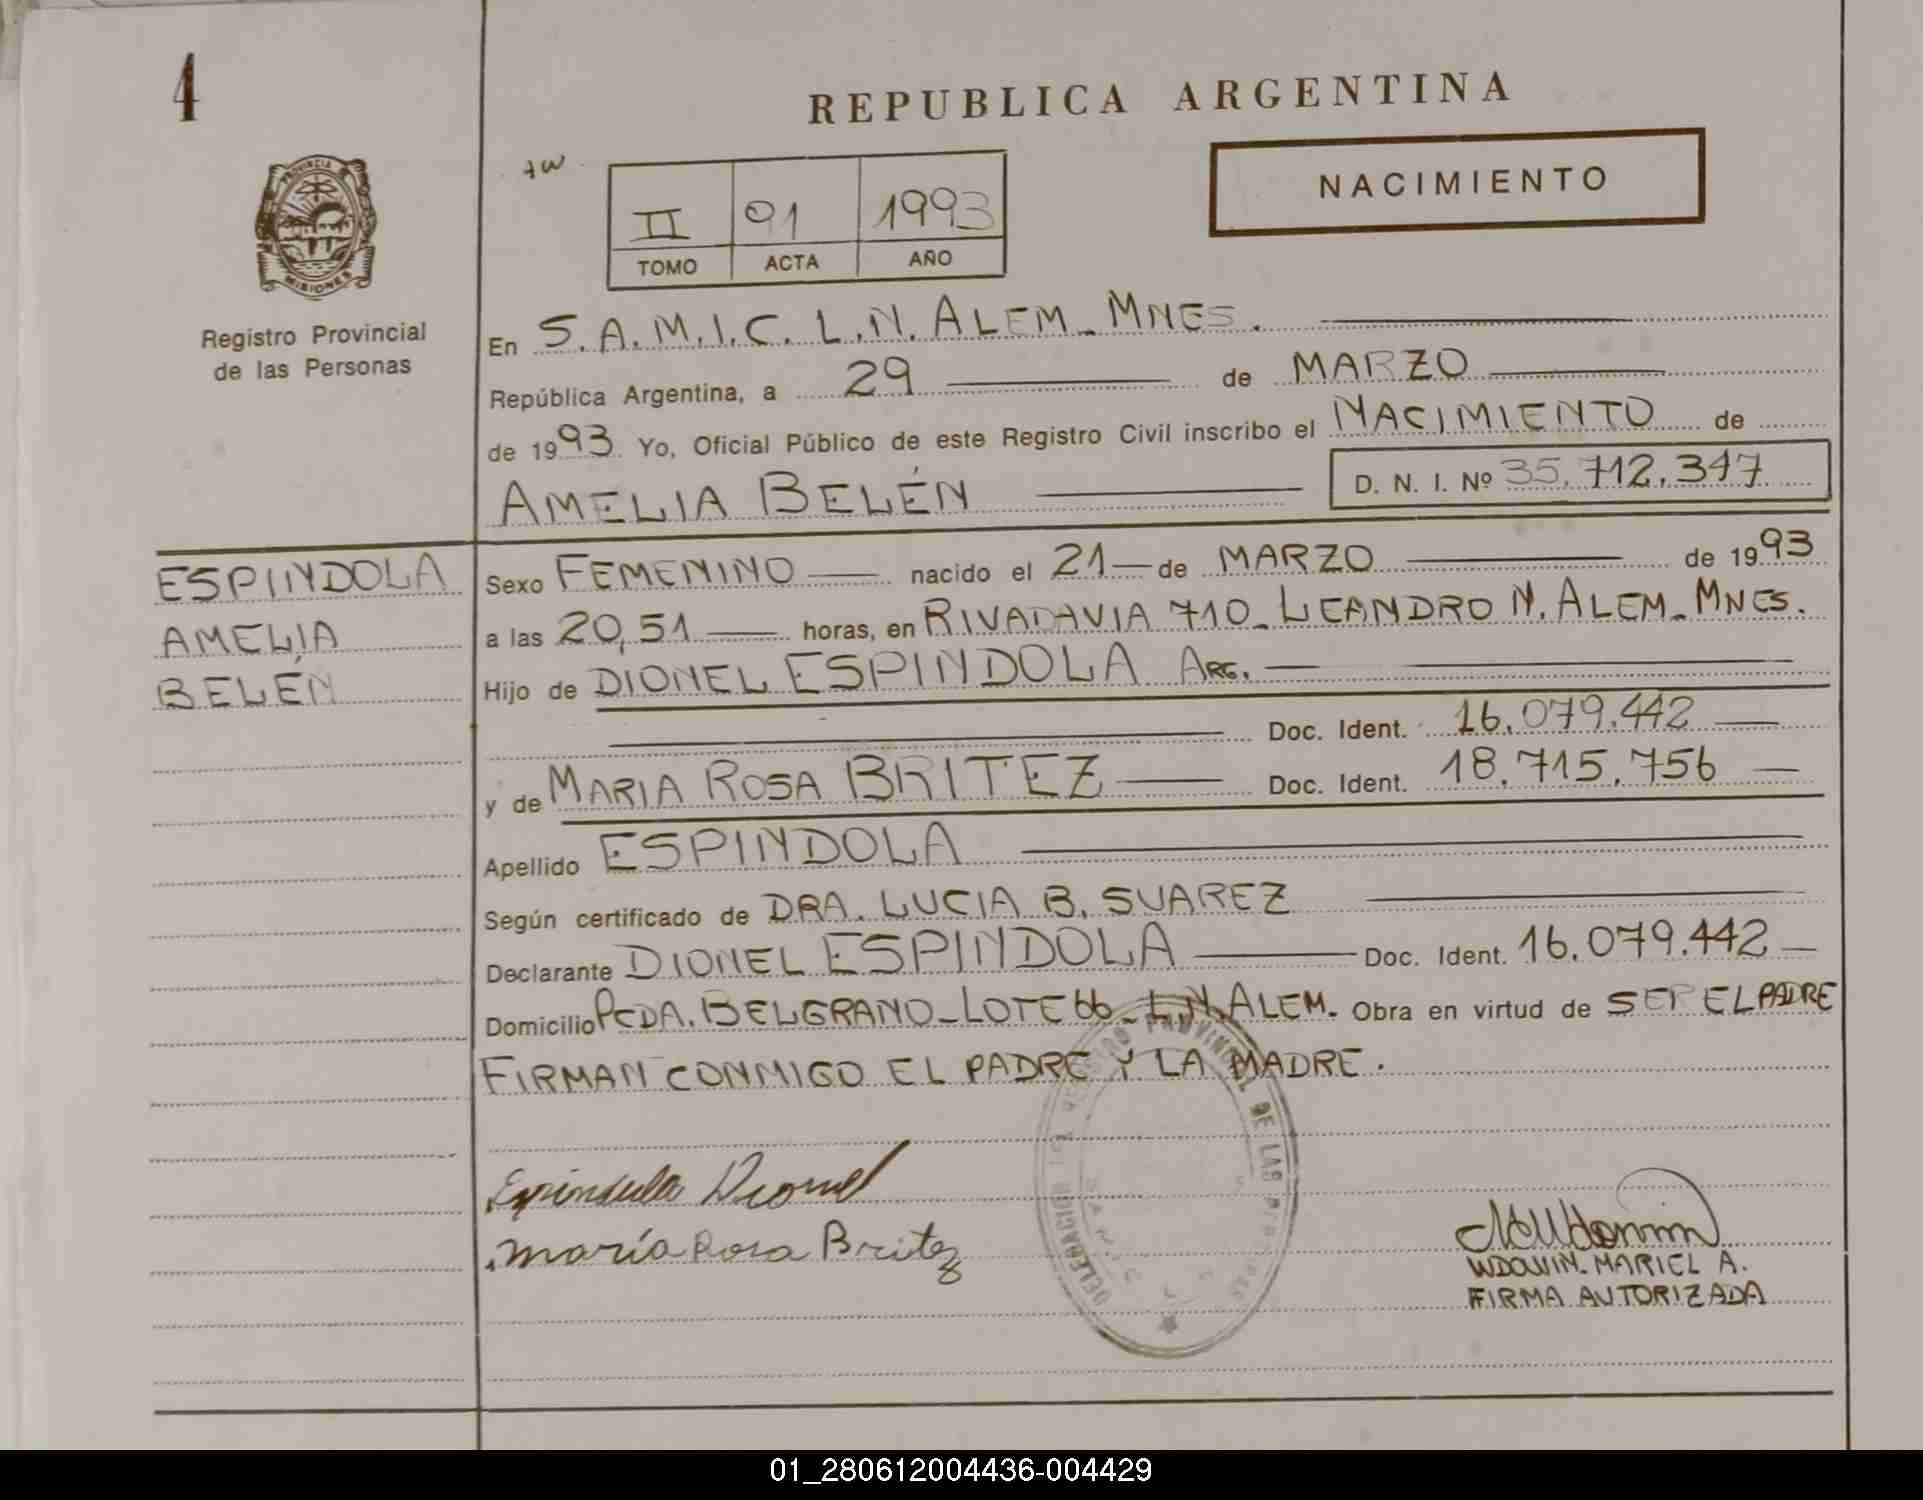 4
REPUBLICA ARGENTINA
NACIMIENTO
PROVINCIA
MISIONES
Registro Provincial
de las Personas
II 91 1993
TOMO ACTA AÑO
En S.A.M.I.C. L.N. ALEM - MNES.
República Argentina, a 29 de MARZO
de 1993 Yo, Oficial Público de este Registro Civil inscribo el NACIMIENTO de
AMELIA BELÉN
D. N. I. Nº 35.712.347
ESPINDOLA
AMELIA
BELÉN
Sexo FEMENINO nacido el 21 de MARZO de 1993
a las 20,51 horas, en RIVADAVIA 710 - LEANDRO N. ALEM - MNES.
Hijo de DIONEL ESPINDOLA ARG.
Doc. Ident. 16.079.442
y de MARIA ROSA BRITEZ Doc. Ident. 18.715.756
Apellido ESPINDOLA
Según certificado de DRA. LUCIA B. SUAREZ
Declarante DIONEL ESPINDOLA Doc. Ident. 16.079.442
Domicilio PCDA. BELGRANO - LOTE 66 - L.N. ALEM. Obra en virtud de SER EL PADRE
FIRMAN CONMIGO EL PADRE Y LA MADRE.
REGISTRO PROVINCIAL DE LAS PERSONAS
DELEGACION
Espindula Dionel
María Rosa Britez
WDOWIN - MARIEL A.
FIRMA AUTORIZADA
01_280612004436-004429